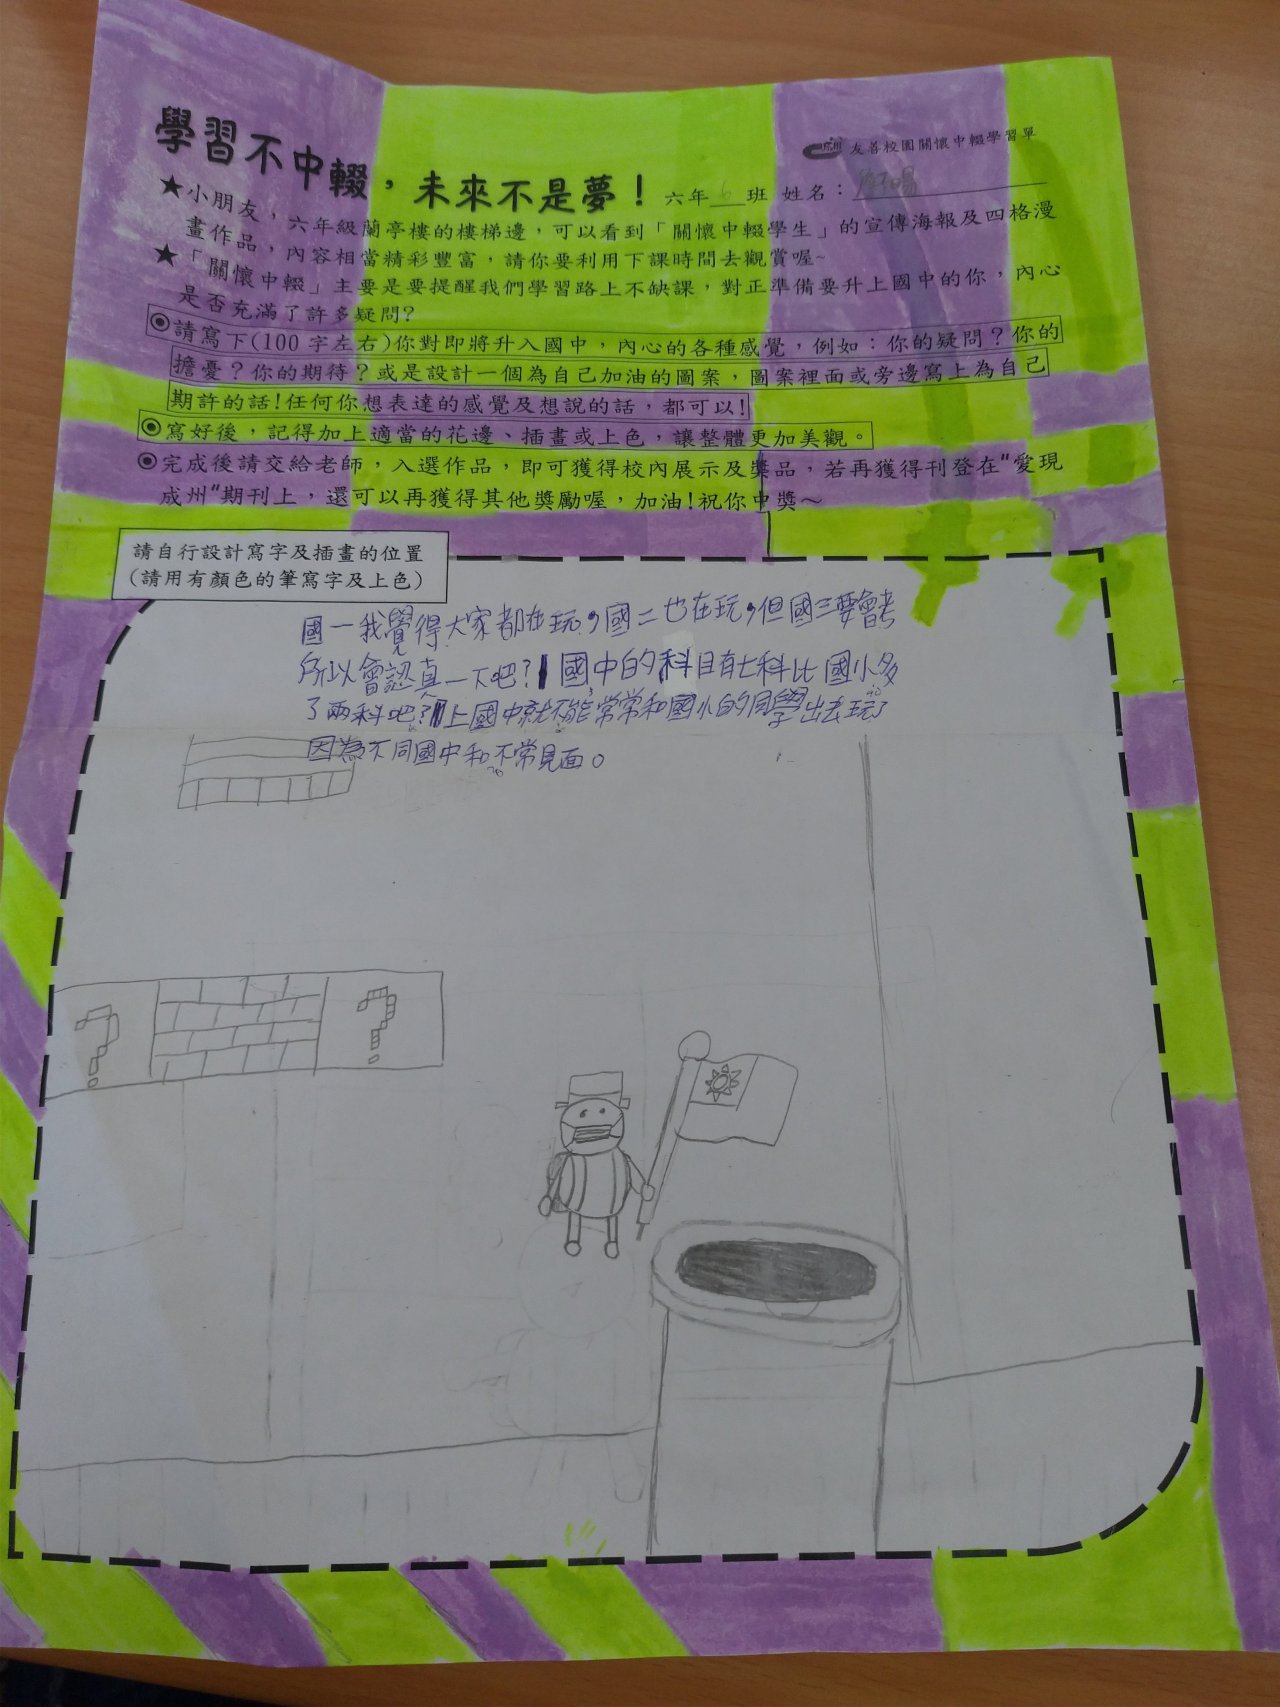 學習不中輟，未來不是夢！
友善校園關懷中輟學習單
六年 6 班 姓名：
★小朋友，六年級蘭亭樓的樓梯邊，可以看到「關懷中輟學生」的宣傳海報及四格漫
畫作品，內容相當精彩豐富，請你要利用下課時間去觀賞喔~
★「關懷中輟」主要是要提醒我們學習路上不缺課，對正準備要升上國中的你，內心
是否充滿了許多疑問？
◉請寫下(100字左右)你對即將升入國中，內心的各種感覺，例如：你的疑問？你的
擔憂？你的期待？或是設計一個為自己加油的圖案，圖案裡面或旁邊寫上為自己
期許的話！任何你想表達的感覺及想說的話，都可以！
◉寫好後，記得加上適當的花邊、插畫或上色，讓整體更加美觀。
◉完成後請交給老師，入選作品，即可獲得校內展示及獎品，若再獲得刊登在"愛現
成州"期刊上，還可以再獲得其他獎勵喔，加油！祝你中獎～
請自行設計寫字及插畫的位置
（請用有顏色的筆寫字及上色）
國一我覺得大家都在玩，國二也在玩，但國三要會考
所以會認真一下吧？國中的科目有七科比國小多
了兩科吧？上國中就不能常常和國小的同學出去玩了
因為不同國中和不常見面。
? ?